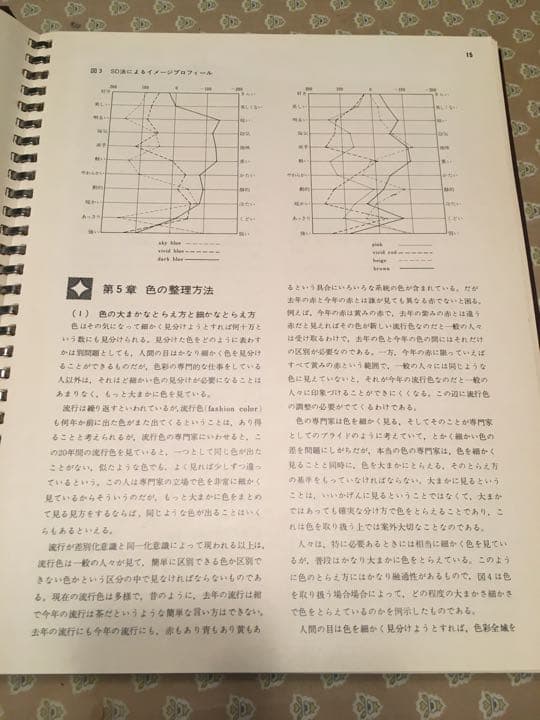 15
図3 SD法によるイメージプロフィール
200 100 0 -100 -200
好き きらい
美しい 美しくない
明るい 暗い
陽気 陰気
派手 地味
軽い 重い
やわらかい かたい
動的 静的
暖かい 冷たい
あっさり くどい
強い 弱い
sky blue
vivid blue
dark blue
200 100 0 -100 -200
好き きらい
美しい 美しくない
明るい 暗い
陽気 陰気
派手 地味
軽い 重い
やわらかい かたい
動的 静的
暖かい 冷たい
あっさり くどい
強い 弱い
pink
vivid red
beige
brown
第5章 色の整理方法
(1) 色の大まかなとらえ方と細かなとらえ方
色はその気になって細かく見分けようとすれば何十万と
いう数にも見分けられる。見分けた色をどのように表わす
かは別問題としても、人間の目はかなり細かく色を見分け
ることができるものだが、色彩の専門的な仕事をしている
人以外は、それほど細かい色の見分けが必要になることは
あまりなく、もっと大まかに色を見ている。
流行は繰り返すといわれているが、流行色(fashion color)
も何年か前に出た色がまた出てくるということは、あり得
ることと考えられるが、流行色の専門家にいわせると、こ
の20年間の流行色を見ていると、一つとして同じ色が出た
ことがない。似たような色でも、よく見れば少しずつ違っ
ているという。この人は専門家の立場で色を非常に細かく
見ているからそういうのだが、もっと大まかに色をまとめ
て見る見方をするならば、同じような色が出ることはいく
らもあるといえる。
流行が差別化意識と同一化意識によって現われる以上は、
流行色は一般の人々が見て、簡単に区別できる色か区別で
きない色かという区分の中で見なければならないものであ
る。現在の流行色は多様で、昔のように、去年の流行は紺
で今年の流行は茶だというような簡単な言い方はできない。
去年の流行にも今年の流行にも、赤もあり青もあり黄もあ
るという具合にいろいろな系統の色が含まれている。だが
去年の赤と今年の赤とは誰が見ても異なる赤でないと困る。
例えば、今年の赤は黄みの赤で、去年の紫みの赤とは違う
赤だと見えればその色が新しい流行色なのだと一般の人々
は受け取るわけで、去年の色と今年の色の間にはそれだけ
の区別が必要なのである。一方、今年の赤に限っていえば
すべて黄みの赤という範囲で、一般の人々には同じような
色に見えていないと、それが今年の流行色なのだと一般の
人々に印象づけることができにくくなる。この辺に流行色
の調整の必要がでてくるわけである。
色の専門家は色を細かく見る、そしてそのことが専門家
としてのプライドのように考えていて、とかく細かい色の
差を問題にしがちだが、本当の色の専門家は、色を細かく
見ることと同時に、色を大まかにとらえる、そのとらえ方
の基準をもっていなければならない。大まかに見るという
ことは、いいかげんに見るということではなくて、大まか
ではあっても確実な分け方で色をとらえることであり、こ
れは色を取り扱う上では案外大切なことなのである。
人々は、特に必要あるときには相当に細かく色を見てい
るが、普段はかなり大まかに色をとらえている。このよう
に色のとらえ方にはかなり融通性があるもので、図4は色
を取り扱う場合場合によって、どの程度の大まかさ細かさ
で色をとらえているのかを例示したものである。
人間の目は色を細かく見分けようとすれば、色彩全域を